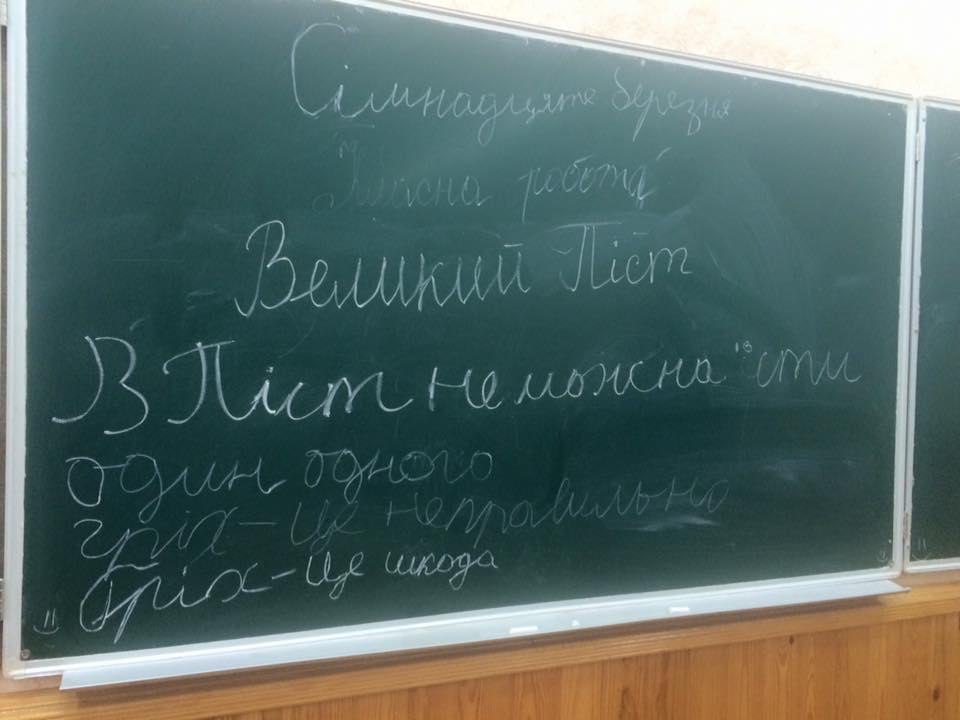 Сімнадцяте березня
Класна робота
Великий Піст
В Піст не можна їсти
один одного
гріх – це неправильно
гріх – це шкода